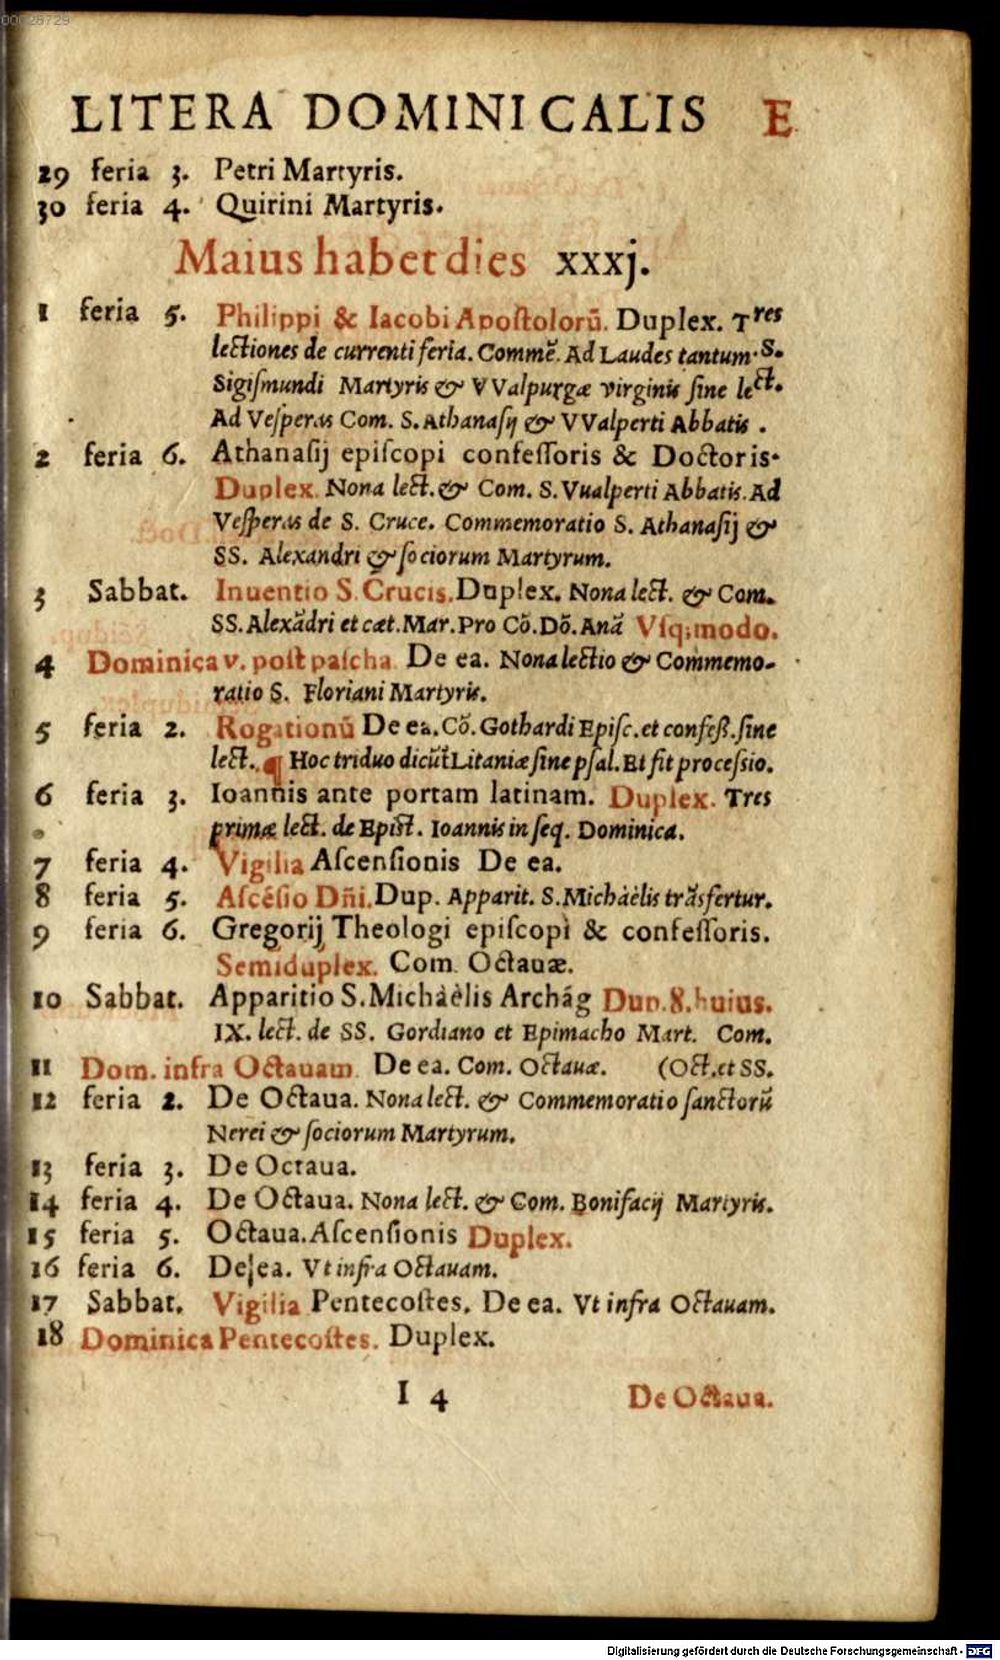 00028729
LITERA DOMINICALIS E
29 feria 3. Petri Martyris.
30 feria 4. Quirini Martyris.
Maius habet dies xxxj.
1 feria 5. Philippi & Iacobi Apoſtolorū. Duplex. Tres
lectiones de currenti feria. Commē. Ad Laudes tantum S.
Sigiſmundi Martyris & VValpurgæ virginis ſine lect.
Ad Veſperas Com. S. Athanaſij & VValperti Abbatis.
2 feria 6. Athanaſij epiſcopi confeſſoris & Doctoris.
Duplex. Nona lect. & Com. S. Vualperti Abbatis. Ad
Veſperas de S. Cruce. Commemoratio S. Athanaſij &
SS. Alexandri & ſociorum Martyrum.
3 Sabbat. Inuentio S. Crucis. Duplex. Nona lect. & Com.
SS. Alexādri et cæt. Mar. Pro Cō. Dō. Anā Vſq; modo.
4 Dominica v. poſt paſcha. De ea. Nona lectio & Commemo-
ratio S. Floriani Martyris.
5 feria 2. Rogationū De ea. Cō. Gothardi Epiſc. et confeſſ. ſine
lect. ¶ Hoc triduo dicūt Litaniæ ſine pſal. Et fit proceſsio.
6 feria 3. Ioannis ante portam latinam. Duplex. Tres
primæ lect. de Epiſt. Ioannis in ſeq. Dominica.
7 feria 4. Vigilia Aſcenſionis De ea.
8 feria 5. Aſcēſio Dñi. Dup. Apparit. S. Michaèlis trāsfertur.
9 feria 6. Gregorij Theologi epiſcopi & confeſſoris.
Semiduplex. Com. Octauæ.
10 Sabbat. Apparitio S. Michaèlis Archāg Dup. 8. huius.
IX. lect. de SS. Gordiano et Epimacho Mart. Com.
11 Dom. infra Octauam. De ea. Com. Octauæ. (Oct. et SS.
12 feria 2. De Octaua. Nona lect. & Commemoratio ſanctorū
Nerei & ſociorum Martyrum.
13 feria 3. De Octaua.
14 feria 4. De Octaua. Nona lect. & Com. Bonifacij Martyris.
15 feria 5. Octaua. Aſcenſionis Duplex.
16 feria 6. De ea. Vt infra Octauam.
17 Sabbat. Vigilia Pentecoſtes. De ea. Vt infra Octauam.
18 Dominica Pentecoſtes. Duplex.
I 4 De Octaua.
Digitalisierung gefördert durch die Deutsche Forschungsgemeinschaft - DFG